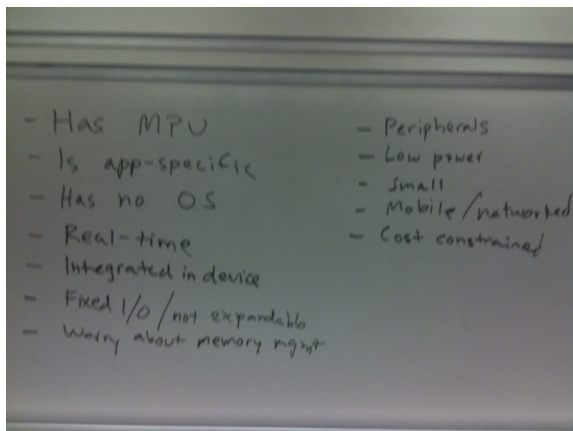 - Has MPU
- Is app-specific
- Has no OS
- Real-time
- Integrated in device
- Fixed I/O / not expandable
- Worry about memory mgmt
- Peripherals
- Low power
- Small
- Mobile / networked
- Cost constrained